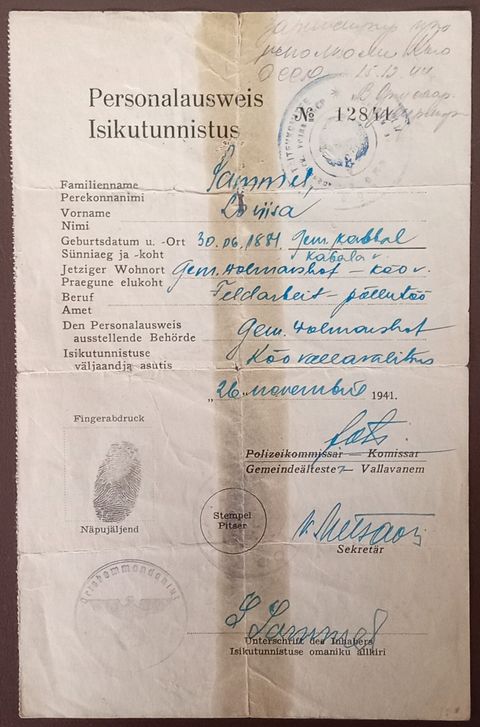 15.12.44
Personalausweis
Isikutunnistus
№ 12841
Familienname
Perekonnanimi
Sammel,
Vorname
Nimi
Loviisa
Geburtsdatum u. -Ort 30.06.1881. Gem. Kabbal
Sünniaeg ja -koht Kabala v.
Jetziger Wohnort Gem. Wolmarshof – Kõo v.
Praegune elukoht
Beruf Feldarbeit – põllutöö
Amet
Den Personalausweis
ausstellende Behörde Gem. Wolmarshof
Isikutunnistuse
väljaandja asutis Kõo vallavalitsus
„26. novembril 1941.
Fingerabdruck
Polizeikommissar — Komissar
Gemeindeälteste — Vallavanem
Näpujäljend
Stempel
Pitser
Sekretär
L. Sammel
Unterschrift des Inhabers
Isikutunnistuse omaniku allkiri